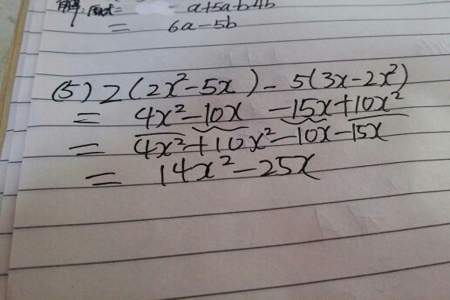 解: = a+5a-b-4b
= 6a-5b
(5) 2(2x²-5x) - 5(3x-2x²)
= 4x²-10x -15x+10x²
= 4x²+10x²-10x-15x
= 14x²-25x